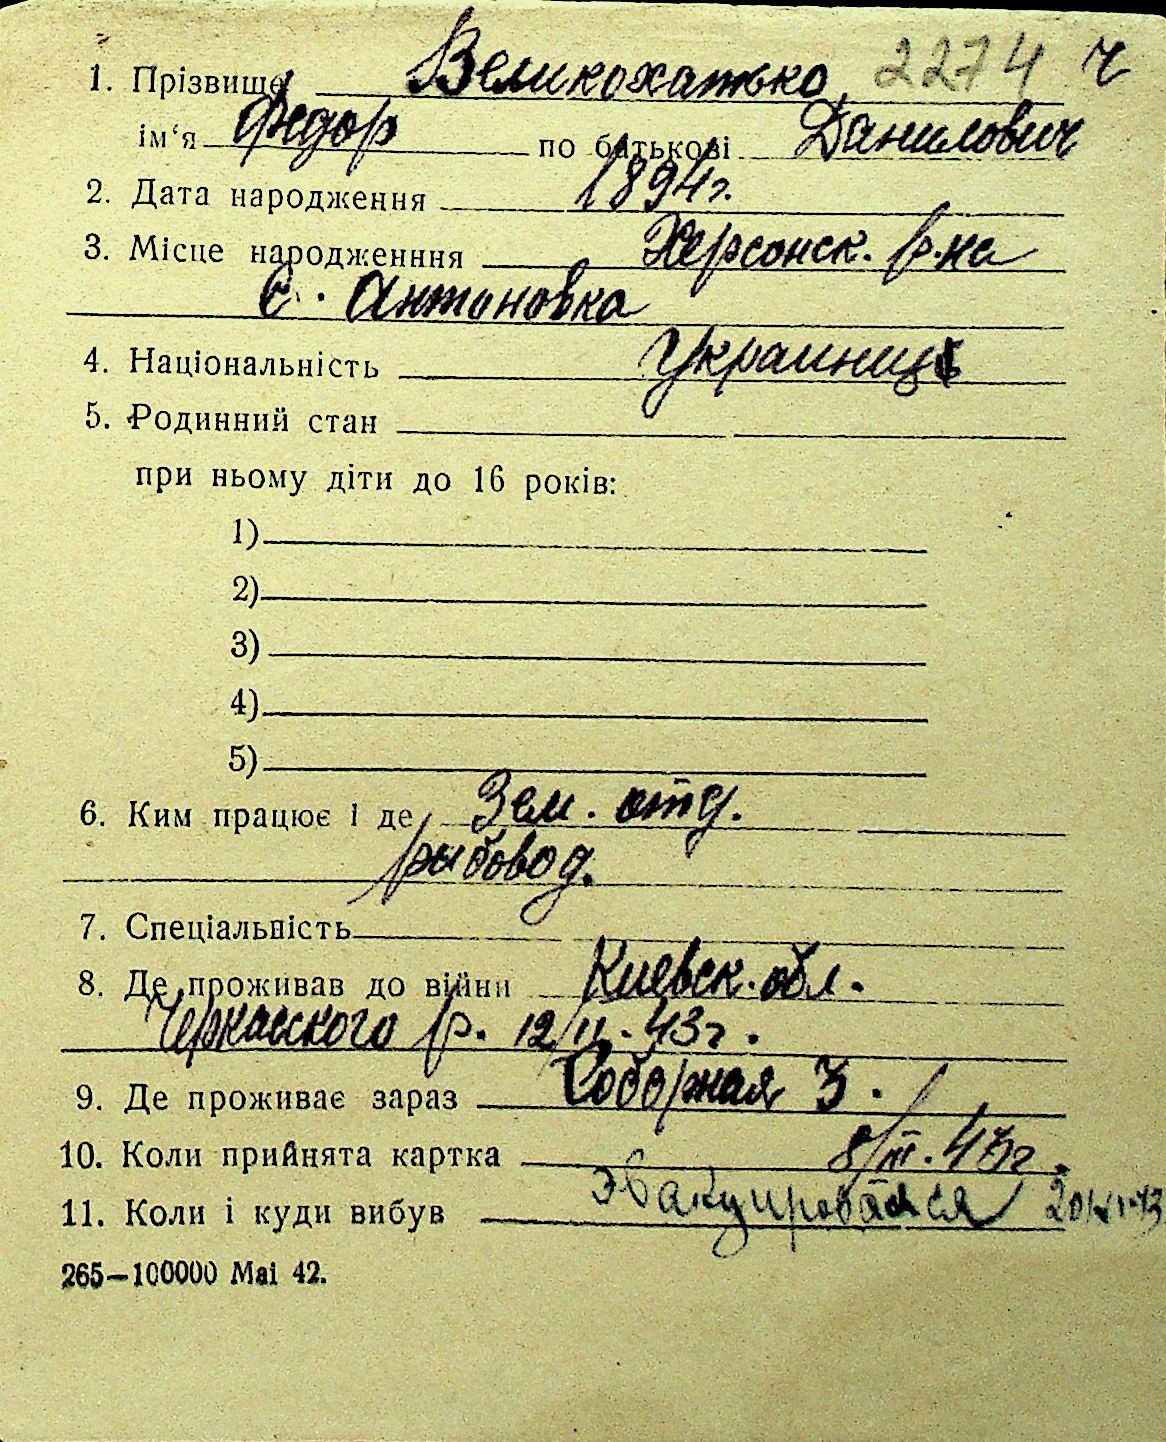 1. Прізвище Великохатько 2274 ч
ім‘я Федор по батькові Данилович
2. Дата народження 1894г.
3. Місце народженння Херсонск. р-на
с. Антоновка
4. Національність Украиниц
5. Родинний стан
при ньому діти до 16 років:
1)
2)
3)
4)
5)
6. Ким працює і де Зем. отд.
рыбовод.
7. Спеціальність
8. Де проживав до війни Киевск. обл.
Черкасского р. 12/II-43г.
9. Де проживає зараз Соборная 3.
10. Коли прийнята картка 8/III.43г.
11. Коли і куди вибув Эвакуировался
265—100000 Mai 42.